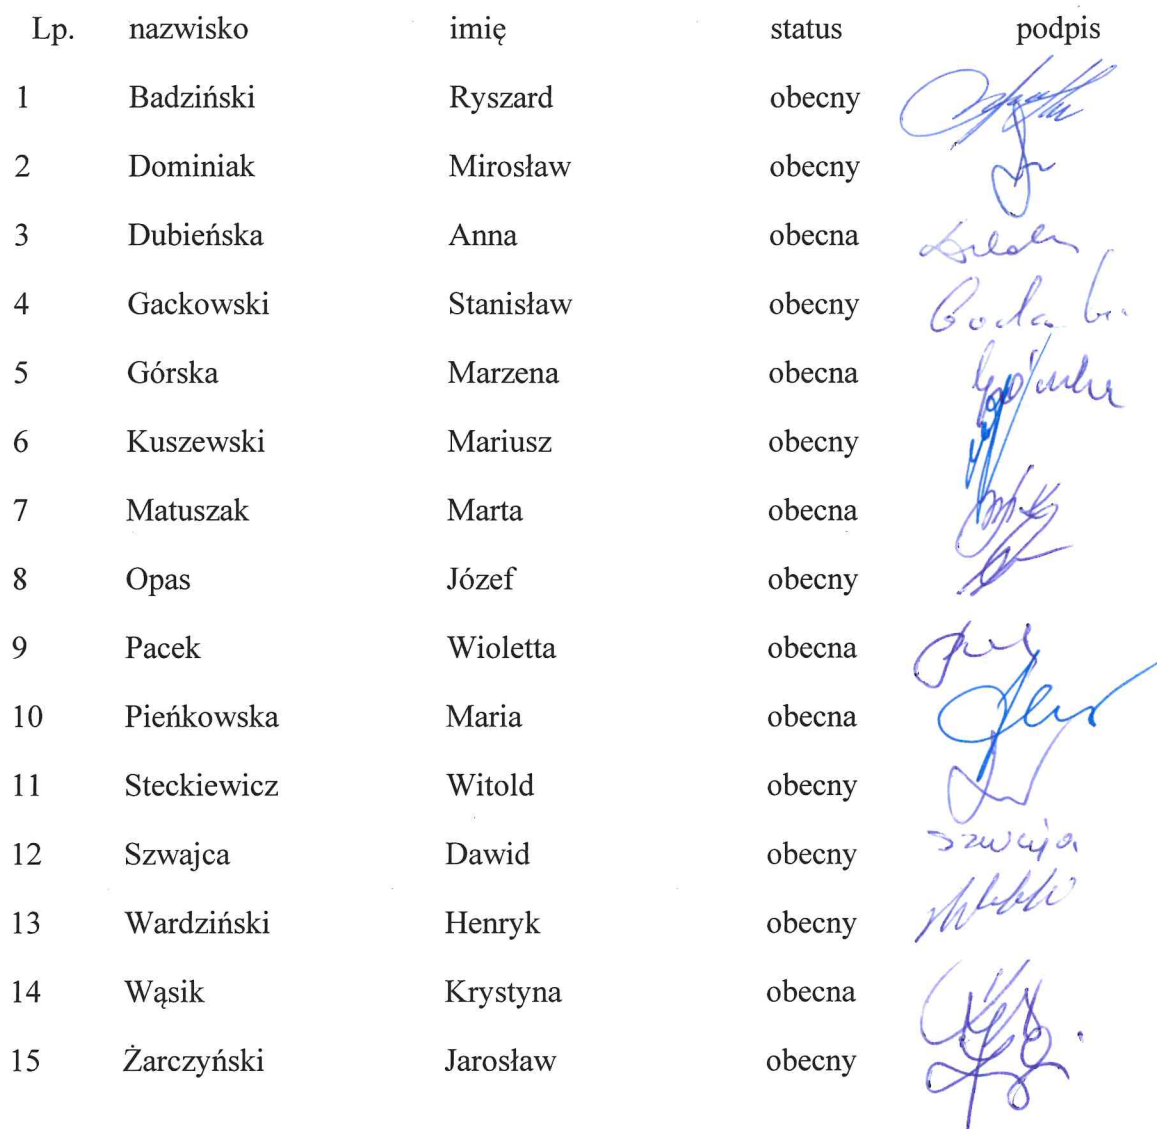 Lp. nazwisko imię status podpis
1 Badziński Ryszard obecny
2 Dominiak Mirosław obecny
3 Dubieńska Anna obecna
4 Gackowski Stanisław obecny
5 Górska Marzena obecna
6 Kuszewski Mariusz obecny
7 Matuszak Marta obecna
8 Opas Józef obecny
9 Pacek Wioletta obecna
10 Pieńkowska Maria obecna
11 Steckiewicz Witold obecny
12 Szwajca Dawid obecny
13 Wardziński Henryk obecny
14 Wąsik Krystyna obecna
15 Żarczyński Jarosław obecny